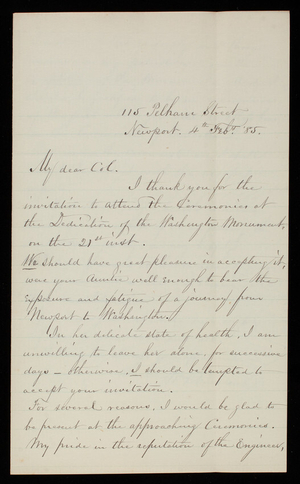 115 Pelham Street
Newport. 4th Feby. 85.
My dear Col.
I thank you for the
invitation to attend the Ceremonies at
the Dedication of the Washington Monument,
on the 21st inst.
We should have great pleasure in accepting it,
were your Auntie well enough to bear the
exposure and fatigue of a journey from
Newport to Washington.
In her delicate state of health, I am
unwilling to leave her alone, for successive
days – otherwise, I should be tempted to
accept your invitation.
For several reasons, I would be glad to
be present at the approaching Ceremonies.
My pride in the reputation of the Engineer,